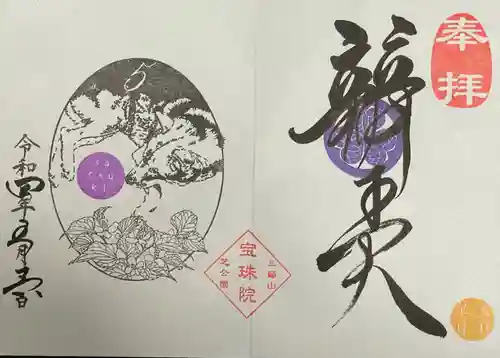 奉拝
辯天
三縁山
宝珠院
芝公園
5
sa
tsu
ki
令和
四年五月